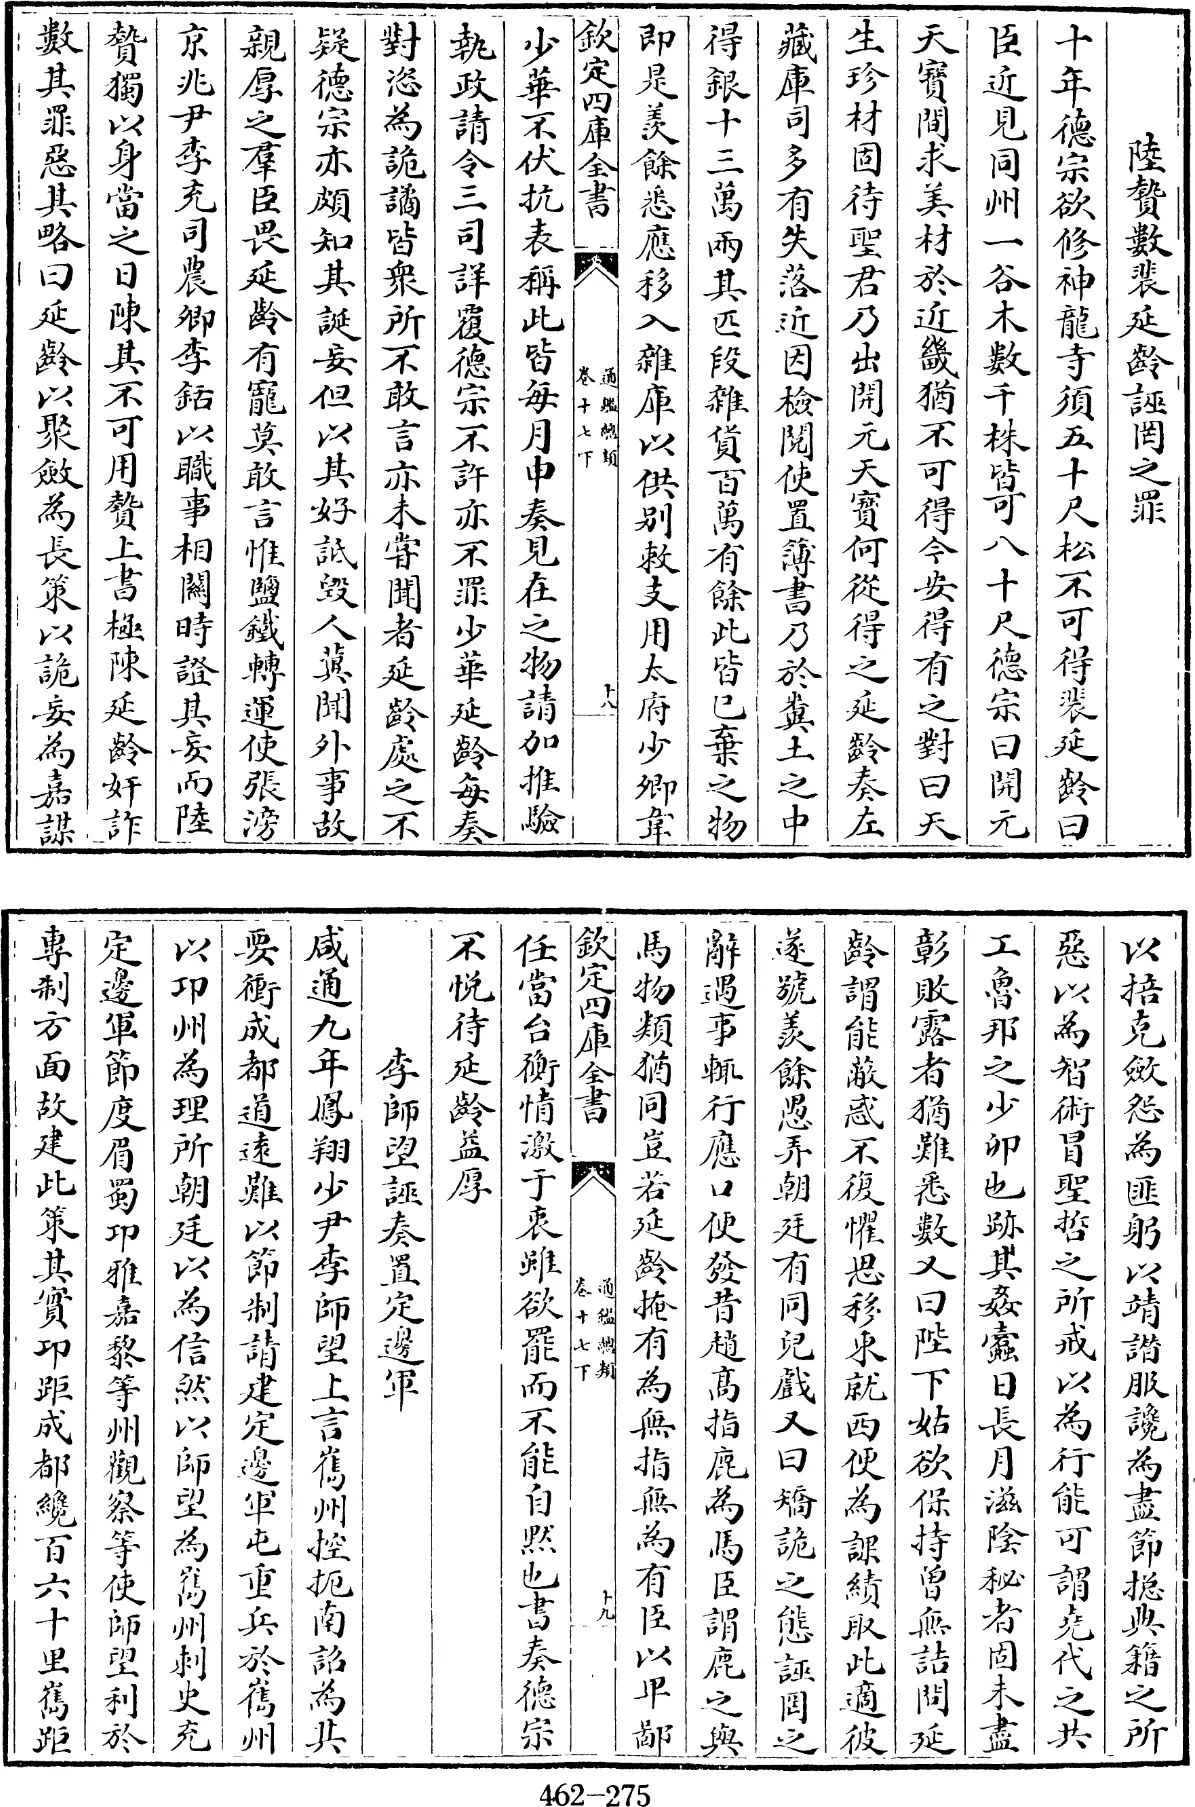 陸贄數裴延齡誣罔之罪
十年德宗欲修神龍寺須五十尺松不可得裴延齡曰
臣近見同州一谷木數千株皆可八十尺德宗曰開元
天寶間求美材於近畿猶不可得今安得有之對曰天
生珍材固待聖君乃出開元天寶何從得之延齡奏左
藏庫司多有失落近因檢閱使置簿書乃於糞土之中
得銀十三萬兩其匹段雜貨百萬有餘此皆已棄之物
即是羨餘悉應移入雜庫以供别敕支用太府少卿韋
欽定四庫全書
通鑑總類
卷十七下
十八
少華不伏抗表稱此皆每月申奏見在之物請加推驗
執政請令三司詳覆德宗不許亦不罪少華延齡每奏
對恣為詭譎皆衆所不敢言亦未嘗聞者延齡處之不
疑德宗亦頗知其誕妄但以其好詆毀人冀聞外事故
親厚之羣臣畏延齡有寵莫敢言惟鹽鐵轉運使張滂
京兆尹李充司農卿李銛以職事相關時證其妄而陸
贄獨以身當之日陳其不可用贄上書極陳延齡奸詐
數其罪惡其略曰延齡以聚斂為長策以詭妄為嘉謀
以掊克斂怨為匪躬以靖譖服讒為盡節揔典籍之所
惡以為智術冒聖哲之所戒以為行能可謂堯代之共
工魯邦之少卯也跡其姦蠹日長月滋陰秘者固未盡
彰敗露者猶難悉數又曰陛下姑欲保持曾無詰問延
齡謂能蔽惑不復懼思移東就西便為課績取此適彼
遂號羨餘愚弄朝廷有同兒戲又曰矯詭之態誣罔之
辭遇事輒行應口便發昔趙髙指鹿為馬臣謂鹿之與
馬物類猶同豈若延齡掩有為無指無為有臣以卑鄙
欽定四庫全書
通鑑總類
卷十七下
十九
任當台衡情激于衷雖欲罷而不能自黙也書奏德宗
不悦待延齡益厚
李師望誣奏置定邊軍
咸通九年鳳翔少尹李師望上言嶲州控扼南詔為其
要衝成都道遠難以節制請建定邊軍屯重兵於嶲州
以邛州為理所朝廷以為信然以師望為嶲州刺史充
定邊軍節度眉蜀邛雅嘉黎等州觀察等使師望利於
專制方面故建此策其實邛距成都纔百六十里嶲距
462-275